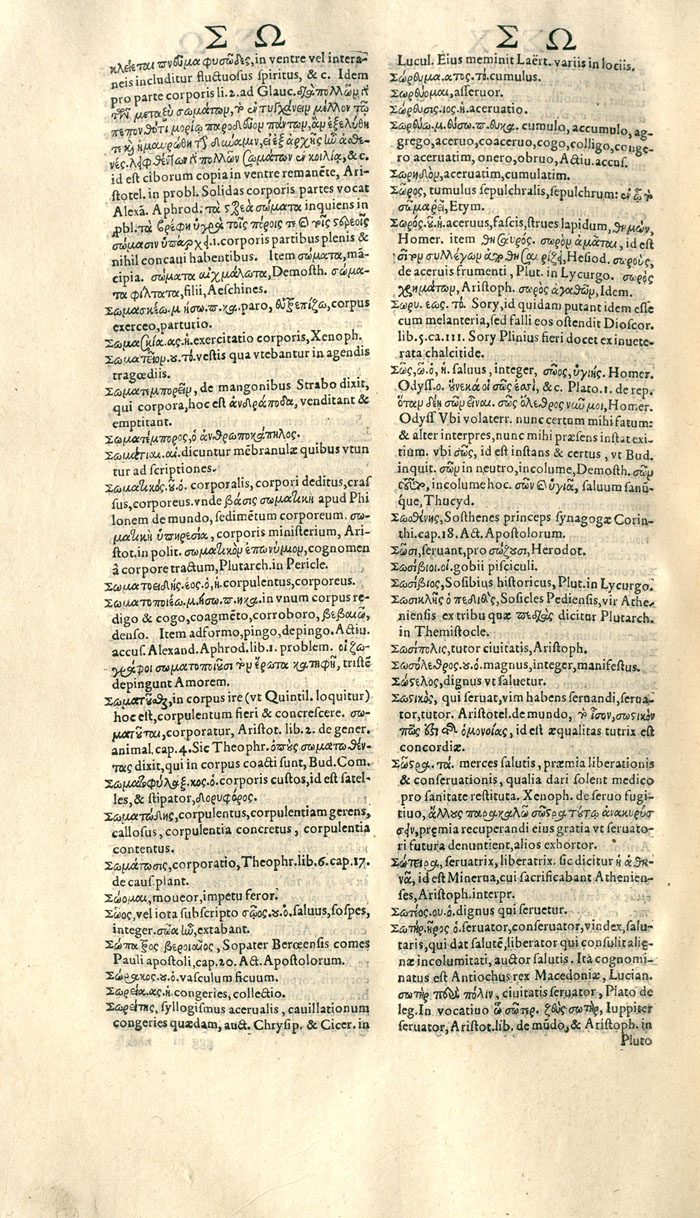 Σ Ω
κλείεται πνεῦμα φυσῶδες, in ventre vel intera-
neis includitur fluctuosus spiritus, & c. Idem
pro parte corporis li. 2. ad Glauc.
μεταξὺ σωμάτων,
πεπονθότι μορίῳ
&c.
id est ciborum copia in ventre remanẽte, Ari-
stotel. in probl. Solidas corporis partes vocat
Alexã. Aphrod: τὰ σώματα inquiens in
ꝓbl.
σώμασιν .i. corporis partibus plenis &
nihil concaui habentibus. Item σώματα, mã-
cipia. σώματα αἰχμάλωτα, Demosth. σώμα-
τα φίλτατα, filii, Aeschines.
Σωμασκέω. μ. ήσω. π. κα. paro, corpus
exerceo, parturio.
Σωμασκία. ας. ἡ. exercitatio corporis, Xenoph.
Σωματεῖον. ου. τό. vestis qua vtebantur in agendis
tragœdiis.
Σωματεμπορεῖν, de mangonibus Strabo dixit,
qui corpora, hoc est ἀνδράποδα, venditant &
emptitant.
Σωματέμπορος, ὁ ἀνθρωποκάπηλος.
Σωμάτιαι. αι. dicuntur mẽbranulæ quibus vtun
tur ad scriptiones.
Σωματικός. οῦ. ὁ. corporalis, corpori deditus, cras
sus, corporeus. vnde βάσις σωματικὴ apud Phi
lonem de mundo, sedimẽtum corporeum. σω-
ματικὴ ὑπηρεσία, corporis ministerium, Ari-
stot. in polit. σωματικὸν ἐπωνύμιον, cognomen
à corpore tractum, Plutarch. in Pericle.
Σωματοειδής. έος. ὁ, ἡ. corpulentus, corporeus.
Σωματοποιέω. μ. ήσω. π. ηκα. in vnum corpus re-
digo & cogo, coagmẽto, corroboro, βεβαιῶ,
denso. Item adformo, pingo, depingo. Actiu.
accus. Alexand. Aphrod. lib. 1. problem. οἱ ζω-
γράφοι σωματοποιοῦσι τὸν ἔρωτα κατηφῆ, tristẽ
depingunt Amorem.
Σωματοῦσθαι, in corpus ire (vt Quintil. loquitur)
hoc est, corpulentum fieri & concrescere. σω-
ματοῦται, corporatur, Aristot. lib. 2. de gener.
animal. cap. 4. Sic Theophr. σωματωθέν-
τας dixit, qui in corpus coacti sunt, Bud. Com.
Σωματοφύλαξ. κος. ὁ. corporis custos, id est satel-
les, & stipator, δορυφόρος.
Σωματώδης, corpulentus, corpulentiam gerens,
callosus, corpulentia concretus, corpulentia
contentus.
Σωμάτωσις, corporatio, Theophr. lib. 6. cap. 17.
de caus. plant.
Σώομαι, moueor, impetu feror.
Σῶος, vel iota subscripto σῷος. ου. ὁ. saluus, sospes,
integer. σῶα ὦ, extabant.
Σώπατρος βεροιαῖος, Sopater Berœensis comes
Pauli apostoli, cap. 20. Act. Apostolorum.
Σώρακος. ου. ὁ. vasculum ficuum.
Σωρεία. ας. ἡ. congeries, collectio.
Σωρείτης, syllogismus acerualis, cauillationum
congeries quædam, auct. Chrysip. & Cicer. in
Σ Ω
Lucul. Eius meminit Laërt. variis in lociis.
Σώρευμα. ατος. τό. cumulus.
Σωρεύομαι, asseruor.
Σώρευσις. ιος. ἡ. aceruatio.
Σωρεύω. μ. εύσω. π. ευκα. cumulo, accumulo, ag-
grego, aceruo, coaceruo, cogo, colligo, conge-
ro aceruatim, onero, obruo, Actiu. accus.
Σωρηδόν, aceruatim, cumulatim.
Σῶρος, tumulus sepulchralis, sepulchrum:
Etym.
Σωρός. οῦ. ἡ. aceruus, fascis, strues lapidum, θημών,
Homer. item θησαυρός. σωρὸν ἀμᾶται, id est
Hesiod. σωροὺς,
de aceruis frumenti, Plut. in Lycurgo. σωρὸς
χρημάτων, Aristoph. σωρὸς ἀγαθῶν, Idem.
Σώρυ. εως. τό. Sory, id quidam putant idem esse
cum melanteria, sed falli eos ostendit Dioscor.
lib. 5. ca. III. Sory Plinius fieri docet ex inuete-
rata chalcitide.
Σῶς, ῶ. ὁ, ἡ. saluus, integer, σῶος, ὑγιής. Homer.
Odyss. ο. οὕνεκά οἱ σῶς ἐσσί, & c. Plato. 1. de rep.
σῶν εἶναι. σῶς ὄλεθρος νῶν μοι, Homer.
Odyss Vbi volaterr. nunc certum mihi fatum:
& alter interpres, nunc mihi præsens instat exi-
tium. vbi σῶς, id est instans & certus, vt Bud.
inquit. σῶν in neutro, incolume, Demosth. σῶν
incolume hoc. σῶν ὑγιᾶ, saluum sanũ-
que, Thucyd.
Σωσθένης, Sosthenes princeps synagogæ Corin-
thi. cap. 18. Act. Apostolorum.
Σῶσι, seruant, pro σώζουσι, Herodot.
Σωσίβιοι. οἱ. gobii pisciculi.
Σωσίβιος, Sosibius historicus, Plut. in Lycurgo.
Σωσικλῆς ὁ πεδιεύς, Sosicles Pediensis, vir Athe-
niensis ex tribu quæ dicitur Plutarch.
in Themistocle.
Σωσίπολις, tutor ciuitatis, Aristoph.
Σωσόλεθρος. ου. ὁ. magnus, integer, manifestus.
Σώσελος, dignus vt saluetur.
Σωστικός, qui seruat, vim habens seruandi, serua-
tor, tutor. Aristotel. de mundo, τὸ ἴσον, σωστικόν
πώς ἐστι ὁμονοίας, id est æqualitas tutrix est
concordiæ.
Σῶστρα. τά. merces salutis, præmia liberationis
& conseruationis, qualia dari solent medico
pro sanitate restituta. Xenoph. de seruo fugi-
tiuo, ἄλλους παρακαλῶ σῶστρα τούτου ἀνακηρύσ
σων, premia recuperandi eius gratia vt seruato-
ri futura denuntient, alios exhortor.
Σώτειρα, seruatrix, liberatrix. sic dicitur ἡ ἀθη-
νᾶ, id est Minerua, cui sacrificabant Athenien-
ses, Aristoph. interpr.
Σωτέος. ου. ὁ. dignus qui seruetur.
Σωτήρ. ῆρος ὁ. seruator, conseruator, vindex, salu-
taris, qui dat salutẽ, liberator qui consulit alie-
næ incolumitati, auctor salutis. Ita cognomi-
natus est Antiochus rex Macedoniæ, Lucian.
σωτὴρ πόλιν, ciuitatis seruator, Plato de
leg. In vocatiuo ὦ σῶτερ. ζεὺς σωτήρ, Iuppiter
seruator, Aristot. lib. de mũdo, & Aristoph. in
Pluto